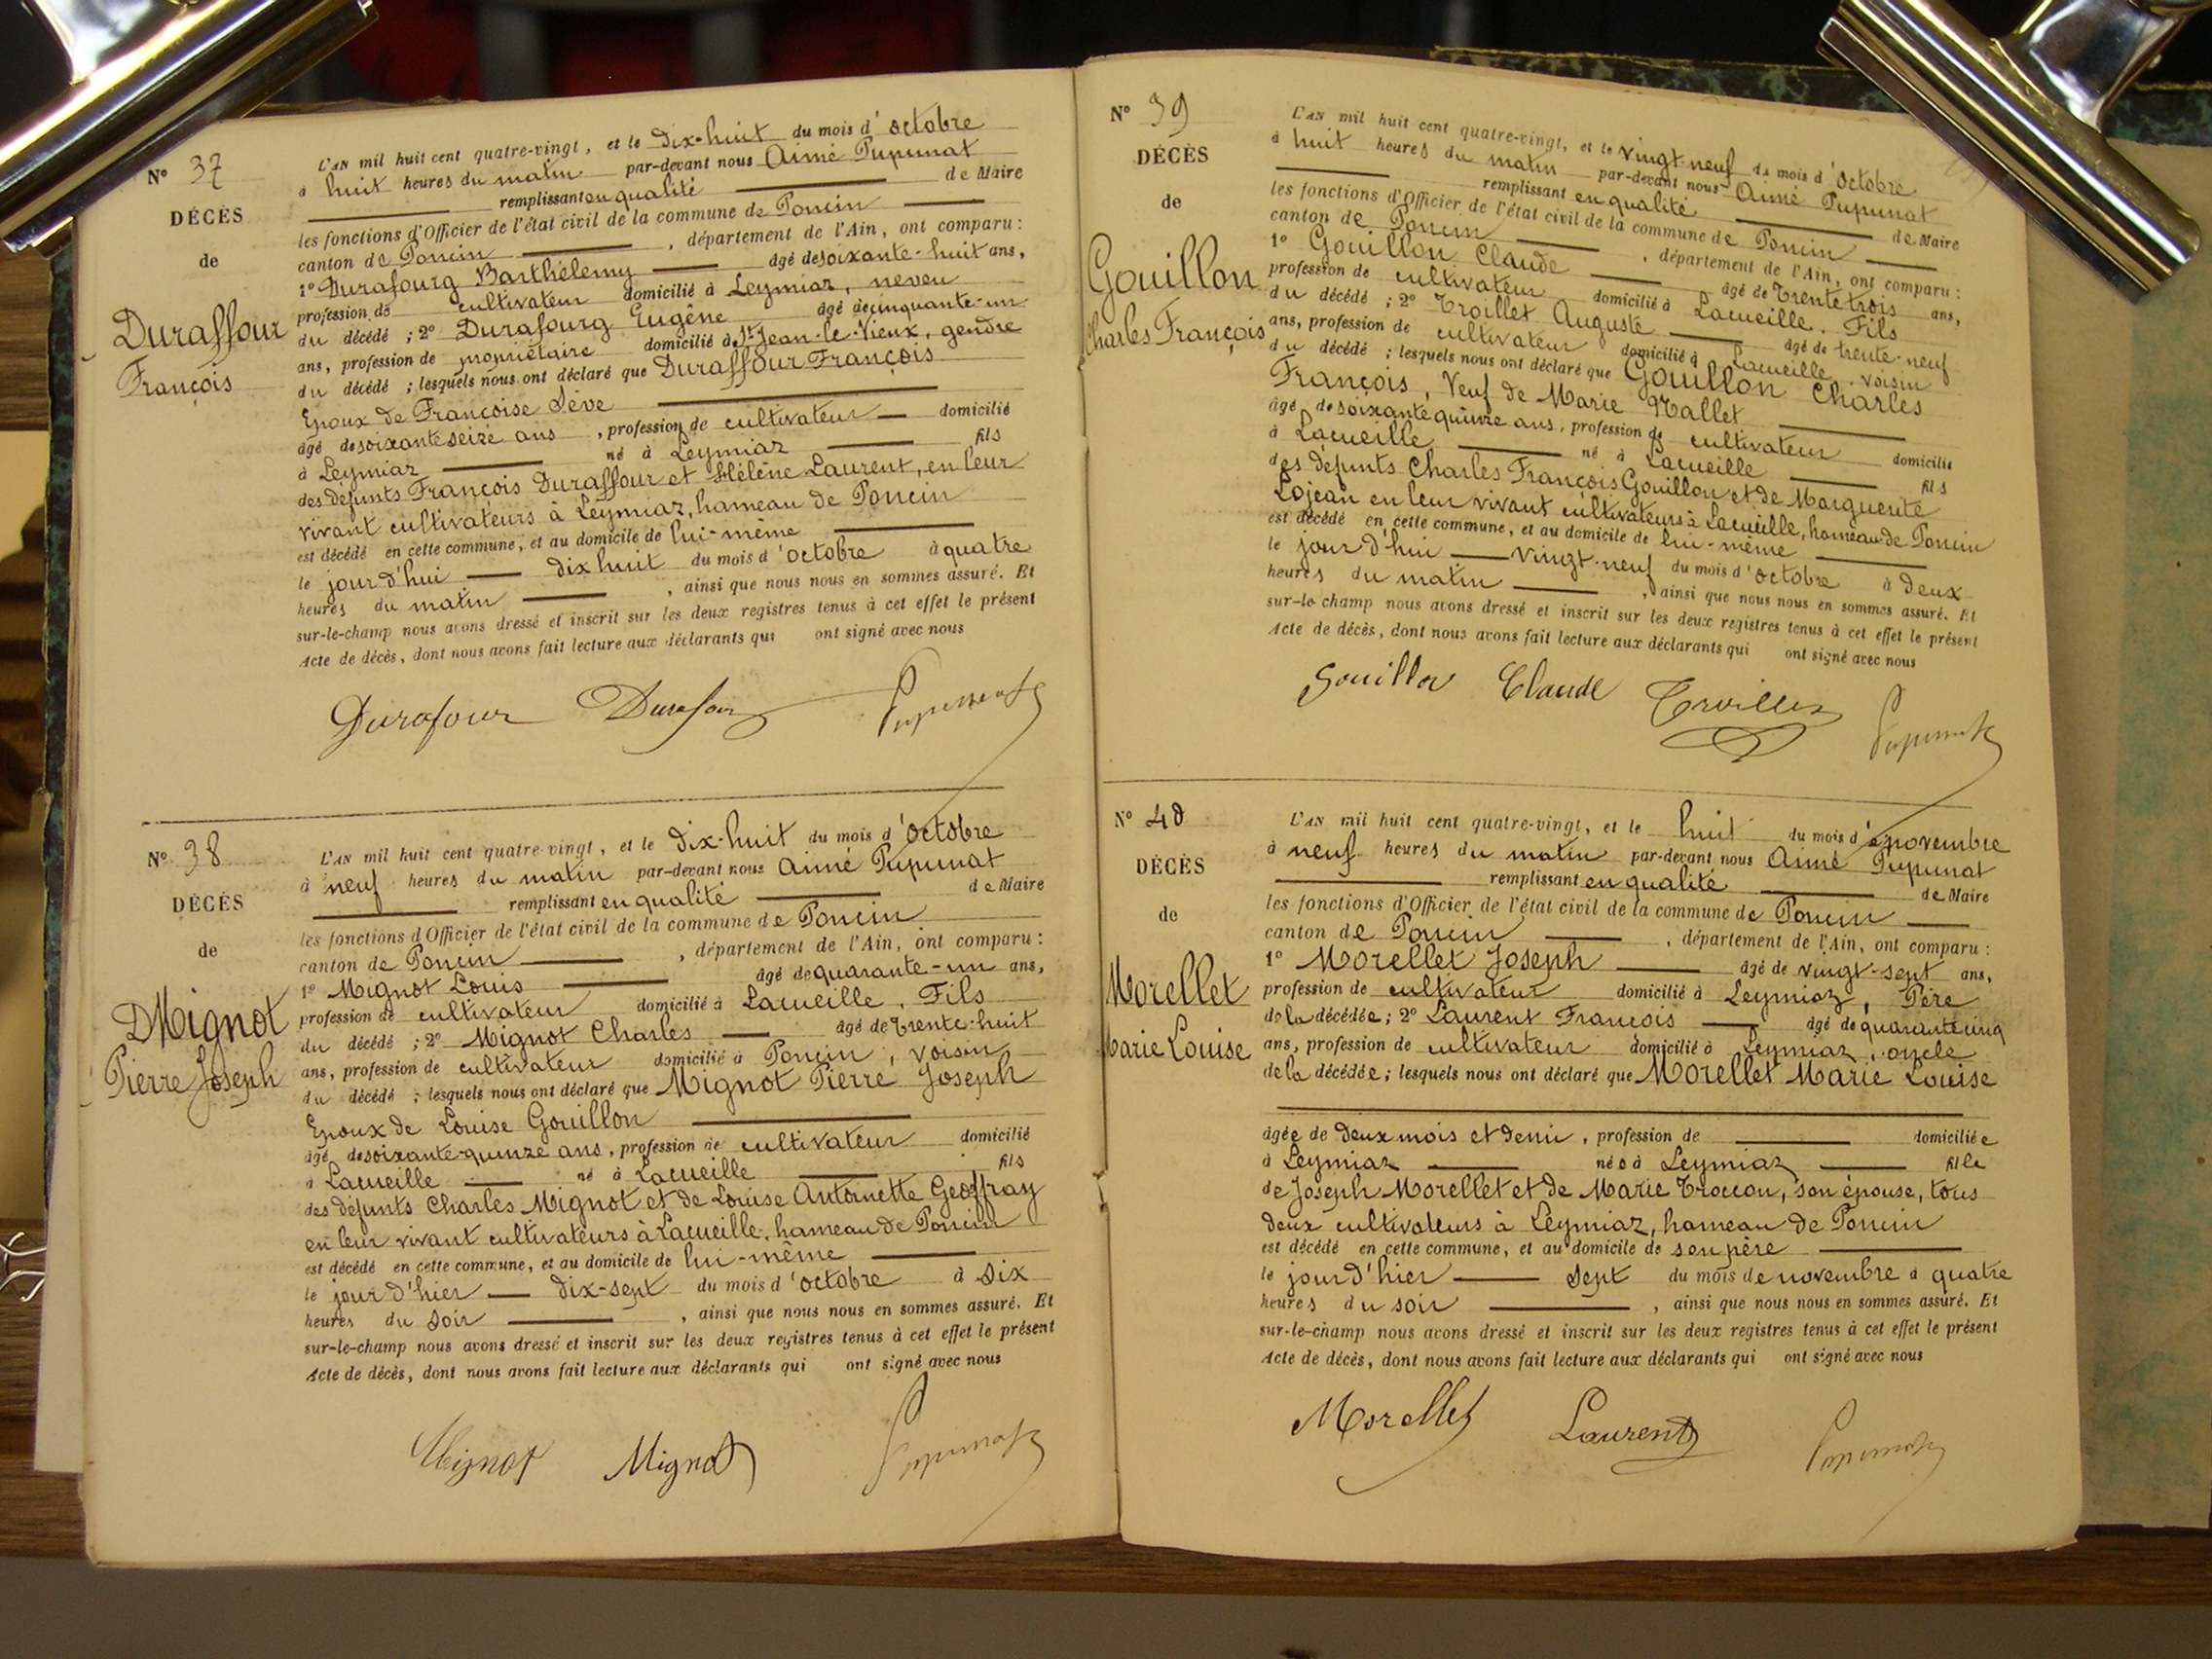 N° 37
DÉCÈS
de
Duraffour
François
L'AN mil huit cent quatre-vingt, et le dix-huit du mois d'octobre
à huit heures du matin par-devant nous Aimé Pupunat
remplissant en qualité de Maire
les fonctions d'Officier de l'état civil de la commune de Poncin
canton de Poncin, département de l'Ain, ont comparu :
1° Durafourg Barthélemy âgé de soixante-huit ans,
profession de cultivateur domicilié à Leymiaz, neveu
du décédé ; 2° Durafourg Eugène âgé de cinquante-un
ans, profession de propriétaire domicilié à St Jean-le-Vieux, gendre
du décédé ; lesquels nous ont déclaré que Duraffour François
Epoux de Françoise Sève
âgé de soixante seize ans, profession de cultivateur domicilié
à Leymiaz né à Leymiaz fils
des défunts François Duraffour et Hélène Laurent, en leur
vivant cultivateurs à Leymiaz, hameau de Poncin
est décédé en cette commune, et au domicile de lui-même
le jour d'hui dix huit du mois d'octobre à quatre
heures du matin, ainsi que nous nous en sommes assuré. Et
sur-le-champ nous avons dressé et inscrit sur les deux registres tenus à cet effet le présent
Acte de décès, dont nous avons fait lecture aux déclarants qui ont signé avec nous
Durafour Durafour Pupunat
N° 38
DÉCÈS
de
Mignot
Pierre Joseph
L'AN mil huit cent quatre-vingt, et le dix-huit du mois d'octobre
à neuf heures du matin par-devant nous Aimé Pupunat
remplissant en qualité de Maire
les fonctions d'Officier de l'état civil de la commune de Poncin
canton de Poncin, département de l'Ain, ont comparu :
1° Mignot Louis âgé de quarante-un ans,
profession de cultivateur domicilié à Lacueille, Fils
du décédé ; 2° Mignot Charles âgé de trente-huit
ans, profession de cultivateur domicilié à Poncin, voisin
du décédé ; lesquels nous ont déclaré que Mignot Pierre Joseph
Epoux de Louise Gouillon
âgé de soixante-quinze ans, profession de cultivateur domicilié
à Lacueille né à Lacueille fils
des défunts Charles Mignot et de Louise Antoinette Geoffray
en leur vivant cultivateurs à Lacueille, hameau de Poncin
est décédé en cette commune, et au domicile de lui-même
le jour d'hier dix-sept du mois d'octobre à six
heures du soir, ainsi que nous nous en sommes assuré. Et
sur-le-champ nous avons dressé et inscrit sur les deux registres tenus à cet effet le présent
Acte de décès, dont nous avons fait lecture aux déclarants qui ont signé avec nous
Mignot Mignot Pupunat
N° 39
DÉCÈS
de
Gouillon
Charles François
L'AN mil huit cent quatre-vingt, et le vingt-neuf du mois d'octobre
à huit heures du matin par-devant nous Aimé Pupunat
remplissant en qualité de Maire
les fonctions d'Officier de l'état civil de la commune de Poncin
canton de Poncin, département de l'Ain, ont comparu :
1° Gouillon Claude âgé de trente trois ans,
profession de cultivateur domicilié à Lacueille. Fils
du décédé ; 2° Troillet Auguste âgé de trente-neuf
ans, profession de cultivateur domicilié à Lacueille, voisin
du décédé ; lesquels nous ont déclaré que Gouillon Charles
François, Veuf de Marie Mallet
âgé de soixante quinze ans, profession de cultivateur domicilié
à Lacueille né à Lacueille fils
des défunts Charles François Gouillon et de Marguerite
Lojean en leur vivant cultivateurs à Lacueille, hameau de Poncin
est décédé en cette commune, et au domicile de lui-même
le jour d'hui vingt-neuf du mois d'octobre à deux
heures du matin, ainsi que nous nous en sommes assuré. Et
sur-le-champ nous avons dressé et inscrit sur les deux registres tenus à cet effet le présent
Acte de décès, dont nous avons fait lecture aux déclarants qui ont signé avec nous
Gouillon Claude Troillet Pupunat
N° 40
DÉCÈS
de
Morellet
Marie Louise
L'AN mil huit cent quatre-vingt, et le huit du mois de novembre
à neuf heures du matin par-devant nous Aimé Pupunat
remplissant en qualité de Maire
les fonctions d'Officier de l'état civil de la commune de Poncin
canton de Poncin, département de l'Ain, ont comparu :
1° Morellet Joseph âgé de vingt-sept ans,
profession de cultivateur domicilié à Leymiaz, Père
de la décédée ; 2° Laurent François âgé de quarante cinq
ans, profession de cultivateur domicilié à Leymiaz, oncle
de la décédée ; lesquels nous ont déclaré que Morellet Marie Louise
âgée de deux mois et demi, profession de domiciliée
à Leymiaz née à Leymiaz fille
de Joseph Morellet et de Marie Troccon, son épouse, tous
deux cultivateurs à Leymiaz, hameau de Poncin
est décédé en cette commune, et au domicile de son père
le jour d'hier sept du mois de novembre à quatre
heures du soir, ainsi que nous nous en sommes assuré. Et
sur-le-champ nous avons dressé et inscrit sur les deux registres tenus à cet effet le présent
Acte de décès, dont nous avons fait lecture aux déclarants qui ont signé avec nous
Morellet Laurent Pupunat